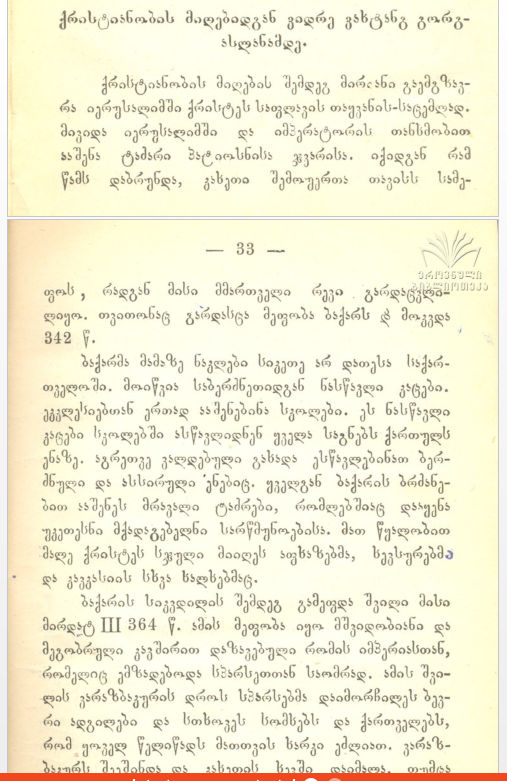 ქრისტიანობის მიღებიდგან ვიდრე ვახტანგ გორგ-
ასლანამდე.
ქრისტიანობის მიღების შემდეგ მირიანი გაემგზავ-
რა იერუსალიმში ქრისტეს საფლავის თაყვანის-საცემლად.
მივიდა იერუსალიმში და იმპერატორის თანხმობით
ააშენა ტაძარი პატიოსნისა ჯვარისა. იქიდგან რამ
წამს დაბრუნდა, კახეთი შემოუერთა თავისს სამე-
— 33 —
ეროვნული
ბიბლიოთეკა
ფოს, რადგან მისი მმართველი რევი გარდაცვლი-
ლიყო. თვითონაც გარდასცა მეფობა ბაქარს და მოკვდა
342 წ.
ბაქარმა მამაზე ნაკლები სიკეთე არ დათესა საქარ-
თველოში. მოიწვია საბერძნეთიდგან ნასწავლი კაცები.
ეკკლესიებთან ერთად ააშენებინა სკოლები. ეს ნასწავლი
კაცები სკოლებში ასწავლიდნენ ყველა საგნებს ქართულს
ენაზე. აგრეთვე ვალდებული გახადა ესწავლებინათ ბერ-
ძნული და ასსირული ენებიც. ყველგან ბაქარის ბრძანე-
ბით ააშენეს მრავალი ტაძრები, რომლებშიაც დააყენა
უკეთესნი მქადაგებელნი სარწმუნოებისა. მათ წყალობით
მალე ქრისტეს სჯული მიიღეს აფხაზებმა, ხევსურებმა
და კავკასიის სხვა ხალხებმაც.
ბაქარის სიკვდილის შემდეგ გამეფდა შვილი მისი
მირდატ III 364 წ. ამის მეფობა იყო მშვიდობიანი და
მეგობრული კავშირით დაზავებული რომის იმპერიასთან,
რომელიც ემზადებოდა სპარსეთთან საომრად. ამის შვი-
ლის ვარაზბაკურის დროს სპარსებმა დაიმორჩილეს ბევ-
რი ადგილები და სთხოვეს სომხებს და ქართველებს,
რომ ყოველ წელიწადს მათთვის ხარკი ეძლიათ. ვარაზ-
ბაკურს შეეშინდა და კახეთის ხევში დაიმალა. თუმცა